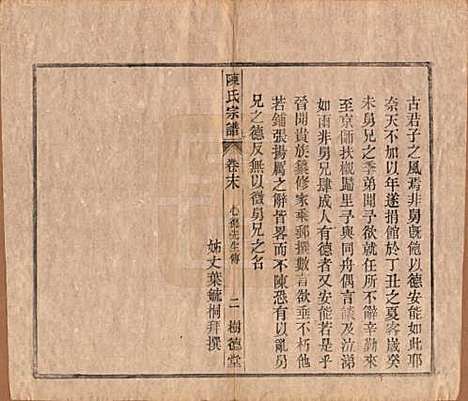 古君子之風焉非舅旣飽以德安能如此耶
奈天不加以年遂捐館於丁丑之夏客歲癸
未舅兄之季弟開子欲就任不辭辛勤來
至京師扶櫬歸里予與同舟偶言談及泣涕
如雨非舅兄肆成人有德者又安能若是乎
晉開貴族纂修家乘郵撰數言欲垂不朽他
若鋪張揚厲之辭皆畧而不陳恐有以亂舅
兄之德反無以徵舅兄之名
姊丈葉毓桐拜撰
陳氏宗譜
卷末
心 先生傳
二
樹德堂